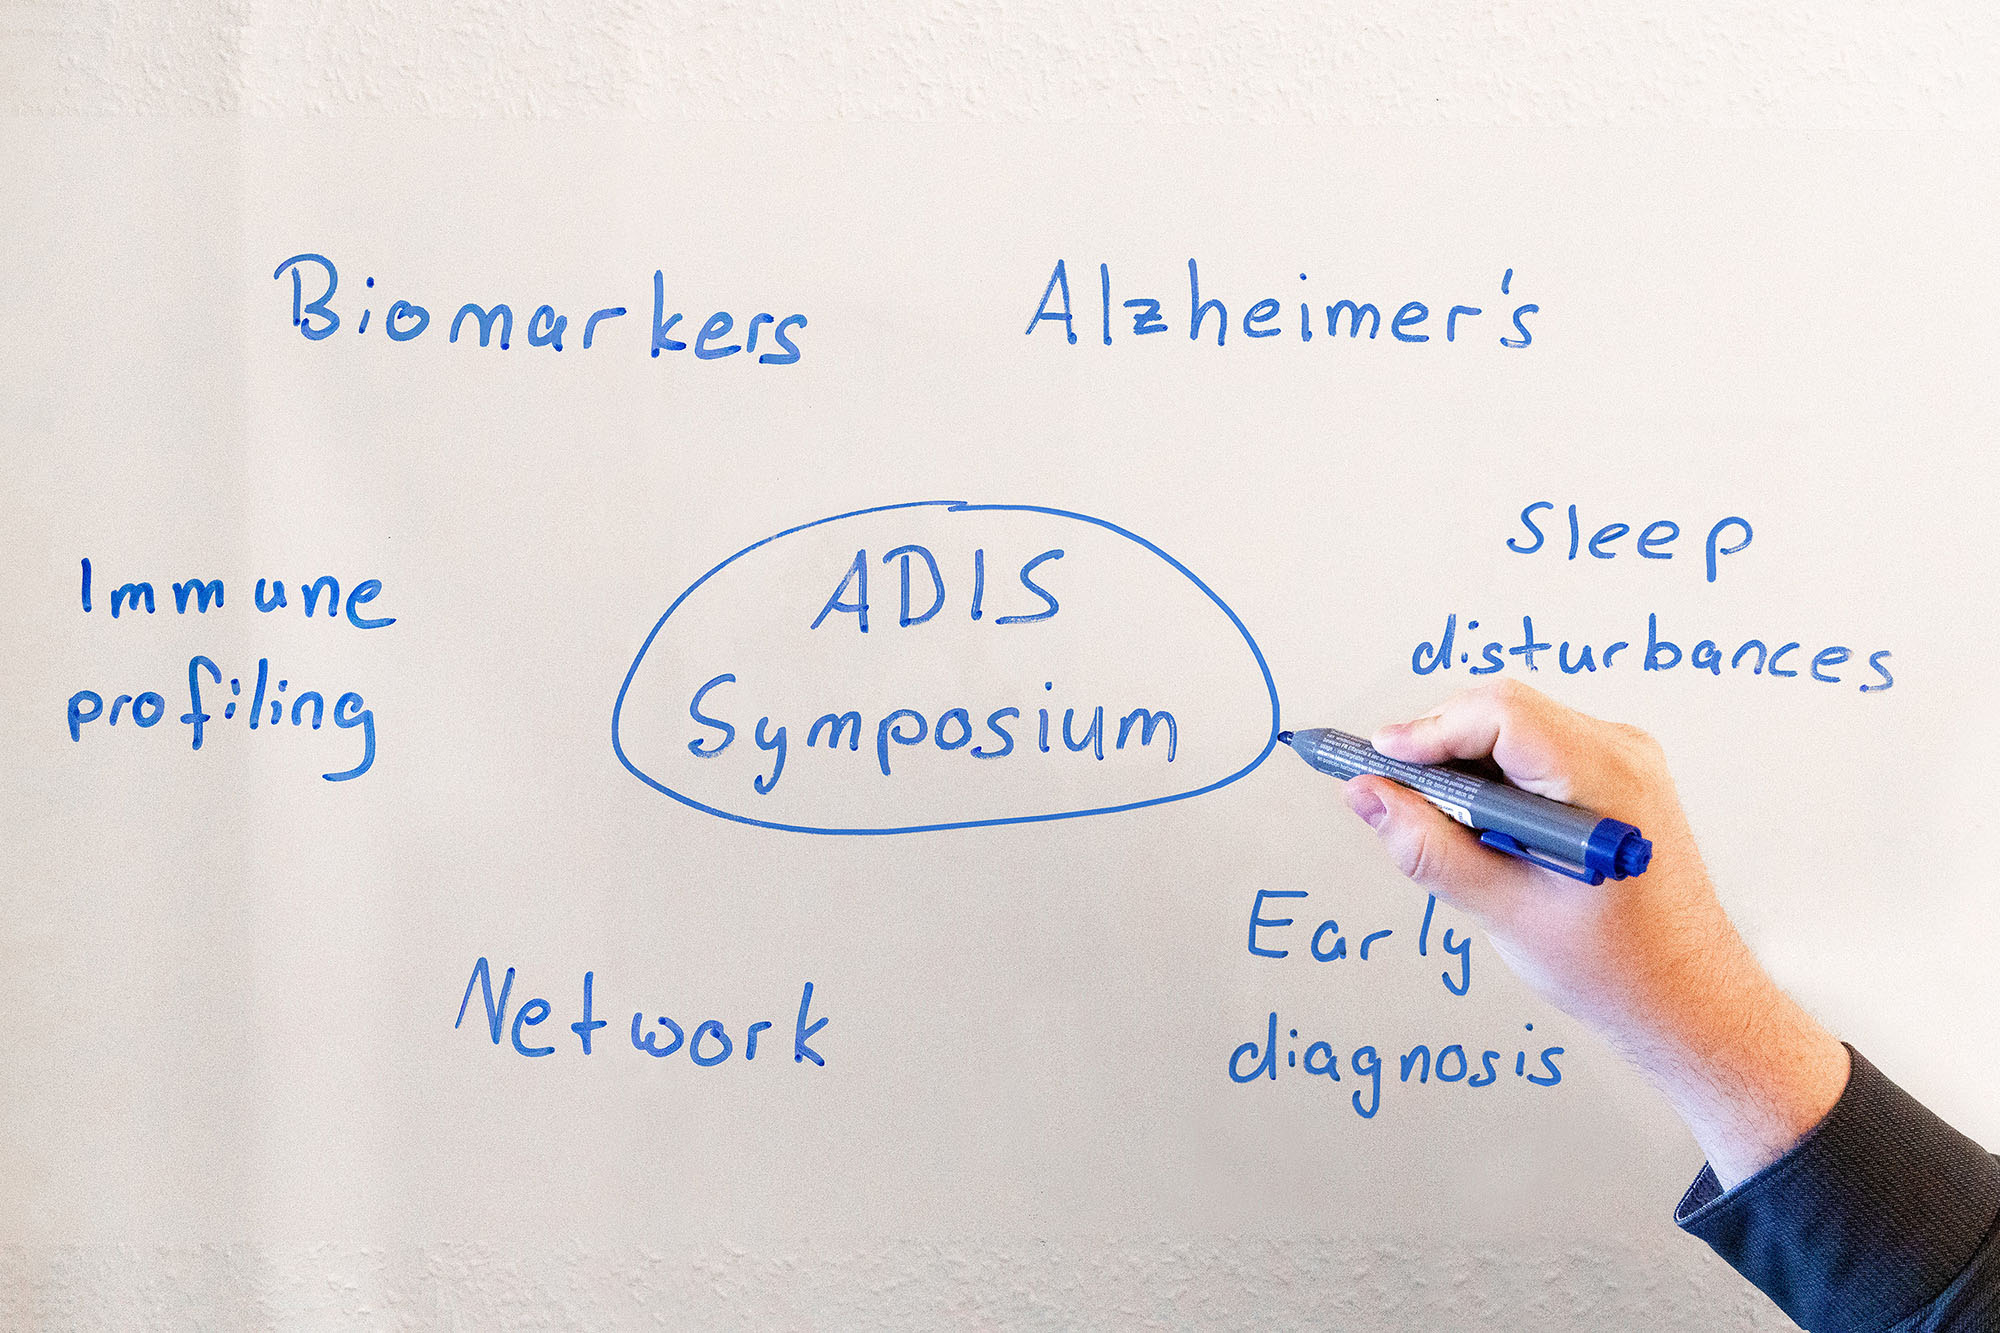 Biomarkers
Alzheimer's
Sleep
disturbances
Immune
profiling
ADIS
Symposium
Early
diagnosis
Network